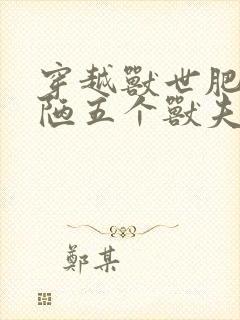 穿越獸世肥
陋五个獸夫
鄭某